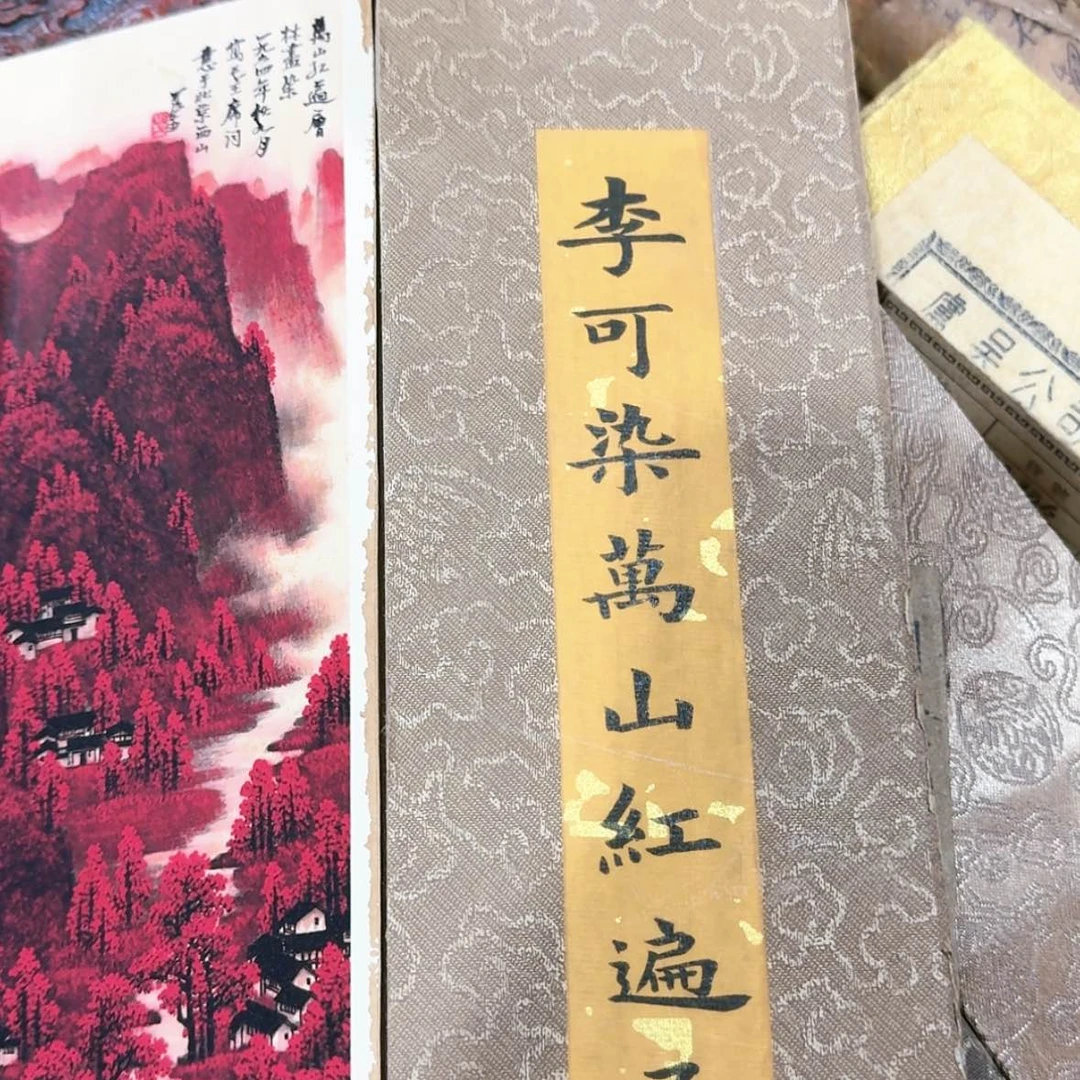 萬山紅遍層
林盡染
一九六四年秋九月
寫毛主席詞
意于北京西山
可染
李可染萬山紅遍
唐吴公司